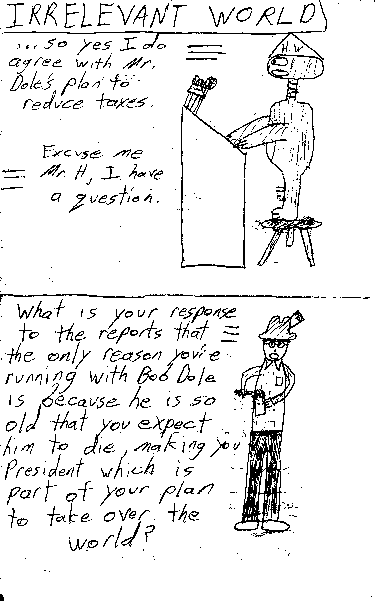 IRRELEVANT WORLD
...so yes I do
agree with Mr.
Dole's plan to
reduce taxes.
H.W
Excuse me
Mr. H, I have
a question.
What is your response
to the reports that
the only reason you're
running with Bob Dole
is because he is so
old that you expect
him to die, making you
President which is
part of your plan
to take over the
world?